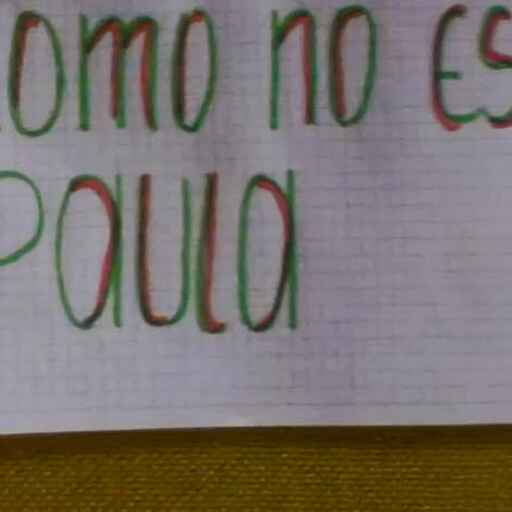 omo no es
Paula